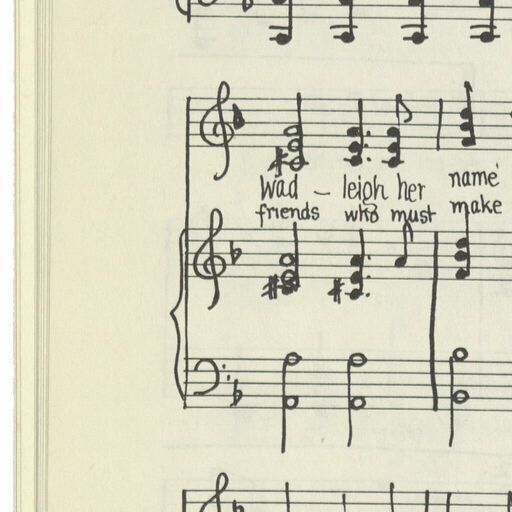 Wad - leigh her name
friends who must make